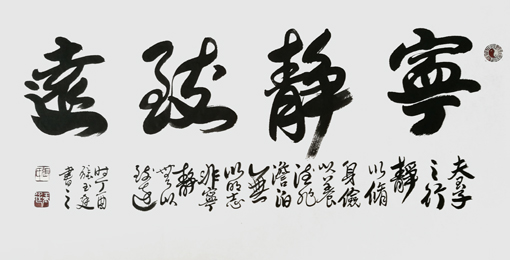 寧靜致遠
夫君子
之行
靜
以脩
身儉
以養
德非
澹泊
無
以明志
非寧
靜
無以
致遠
時丁酉
張玉
書之